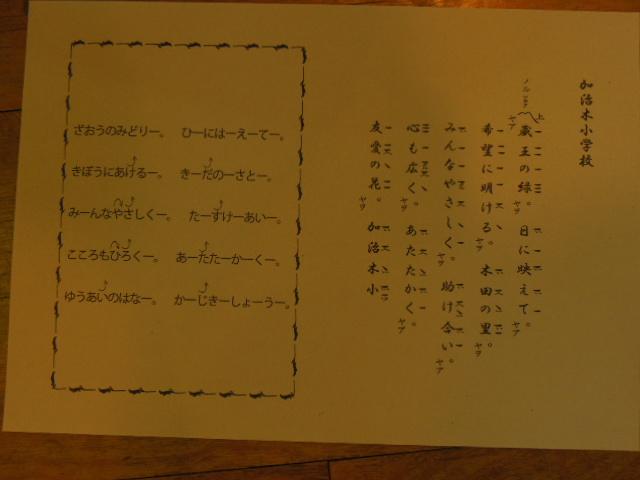 加治木小学校
蔵王の緑。日に映えて。
希望に明ける。木田の里。
みんなやさしく。助け合い。
心も広く。あたたかく。
友愛の花。加治木小
ざおうのみどりー。 ひーにはーえーてー。
きぼうにあけるー。 きーだのーさとー。
みーんなやさしくー。 たーすけーあいー。
こころもひろくー。 あーたたーかーくー。
ゆうあいのはなー。 かーじきーしょーうー。